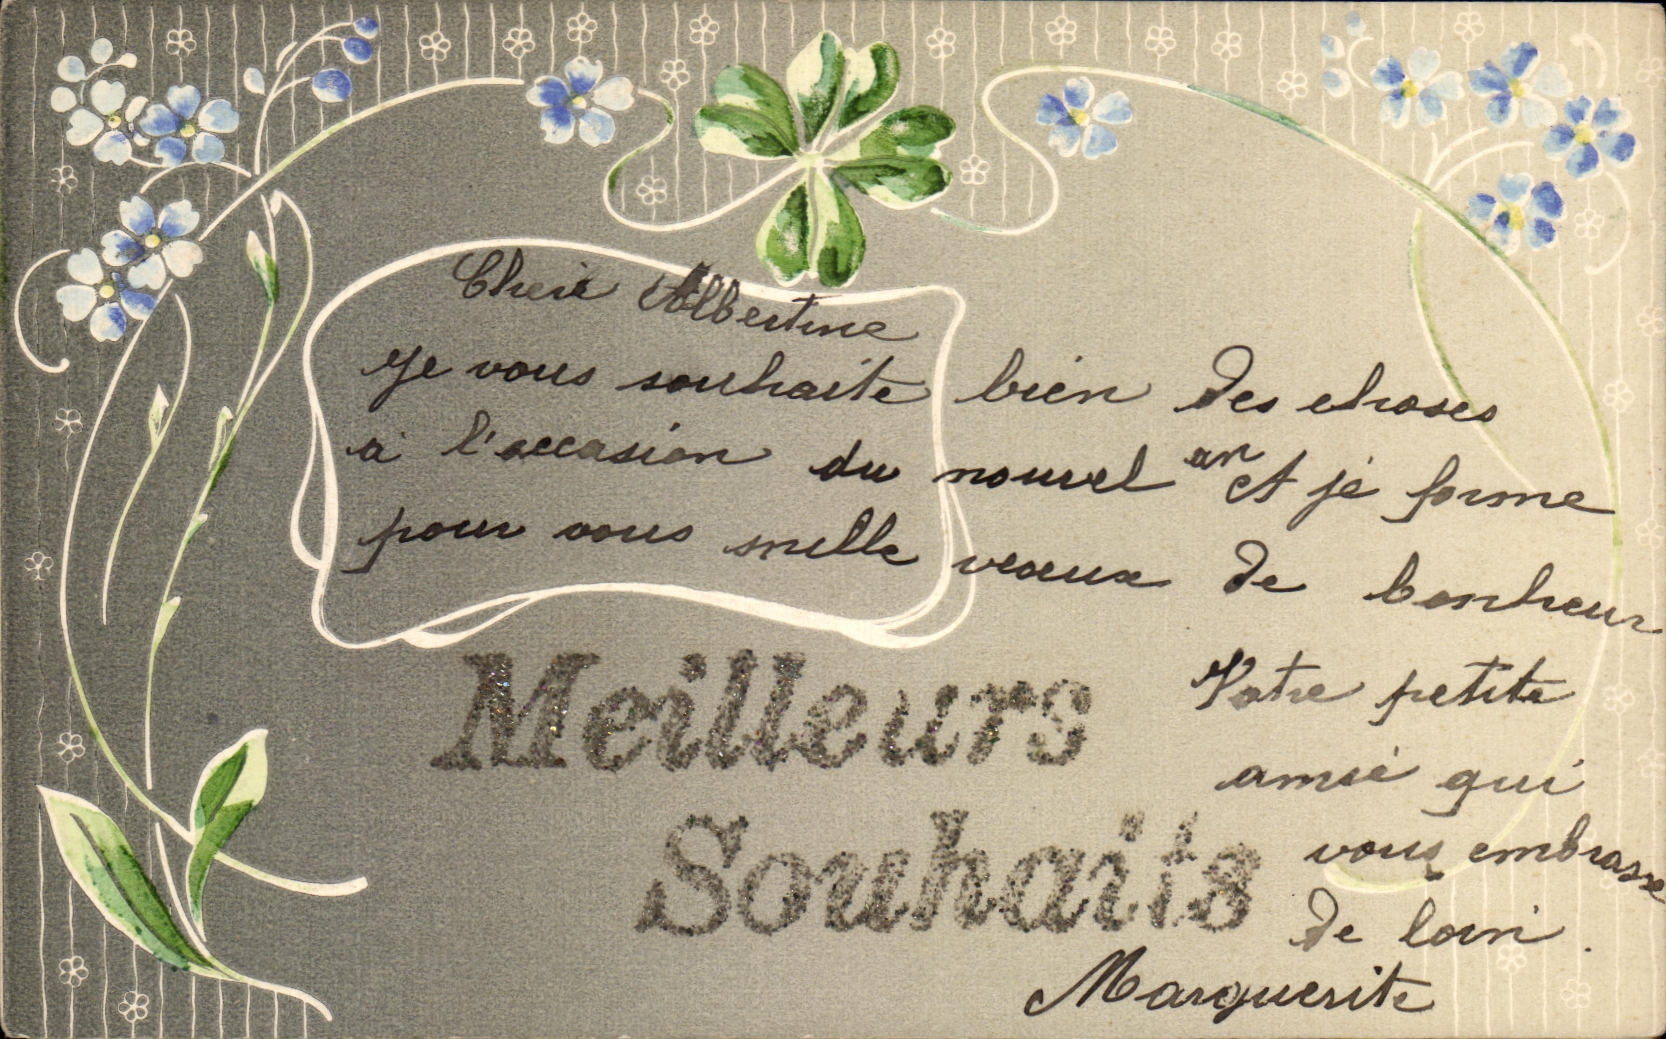 Cherie Albertine
Je vous souhaite bien des choses
a l'occasion du nouvel an et je forme
pour vous mille voeux de bonheur
Votre petite
amie qui
vous embrasse
de loin.
Marguerite
Meilleurs
Souhaits